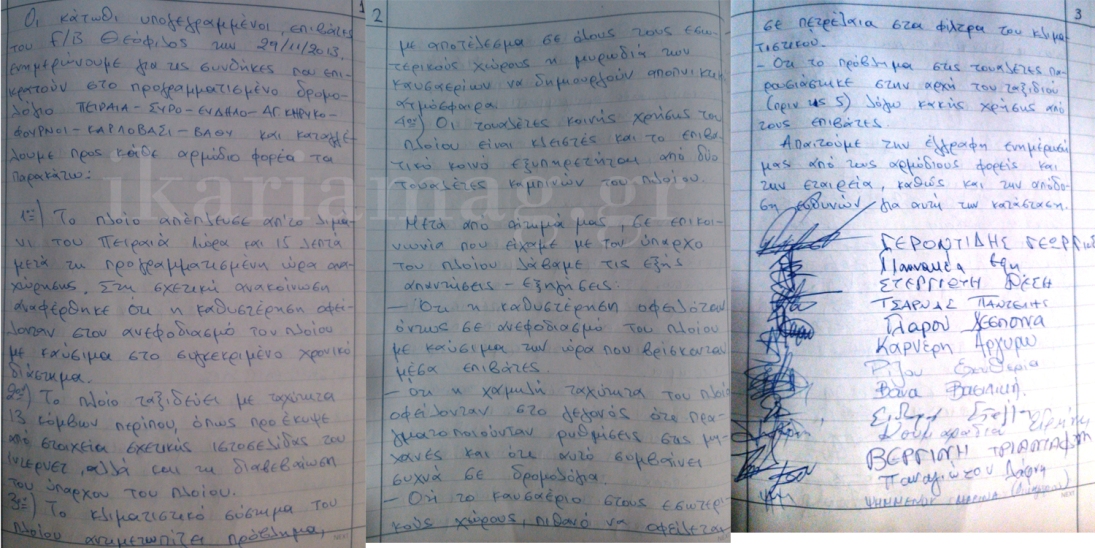 1
Οι κάτωθι υπογεγραμμένοι, επιβάτες
του F/B Θεόφιλος την 29/11/2013
ενημερώνουμε για τις συνθήκες που επι-
κρατούν στο προγραμματισμένο δρομο-
λόγιο ΠΕΙΡΑΙΑ - ΣΥΡΟ - ΕΥΔΗΛΟ - ΑΓ ΚΗΡΥΚΟ -
ΦΟΥΡΝΟΙ - ΚΑΡΛΟΒΑΣΙ - ΒΑΘΥ και καταγγέ-
λουμε προς κάθε αρμόδιο φορέα τα
παρακάτω:
1ον) Το πλοίο απέπλευσε απ'το λιμά-
νι του Πειραιά 1 ώρα και 15 λεπτά
μετά τη προγραμματισμένη ώρα ανα-
χώρησης. Στη σχετική ανακοίνωση
αναφέρθηκε ότι η καθυστέρηση οφεί-
λονταν στον ανεφοδιασμό του πλοίου
με καύσιμα στο συγκεκριμένο χρονικό
διάστημα.
2ον) Το πλοίο ταξιδεύει με ταχύτητα
13 κόμβων περίπου, όπως προέκυψε
από στοιχεία σχετικής ιστοσελίδας του
ίντερνετ, αλλά και τη διαβεβαίωση
του ύπαρχου του πλοίου.
3ον) Το κλιματιστικό σύστημα του
πλοίου αντιμετωπίζει πρόβλημα,
2
με αποτέλεσμα σε όλους τους εσω-
τερικούς χώρους η μυρωδιά των
καυσαερίων να δημιουργούν αποπνικτική
ατμόσφαιρα.
4ον) Οι τουαλέτες κοινής χρήσης του
πλοίου είναι κλειστές και το επιβα-
τικό κοινό εξυπηρετήται από δύο
τουαλέτες καμπινών του πλοίου.
Μετά από αίτημά μας, σε επικοι-
νωνία που είχαμε με τον ύπαρχο
του πλοίου λάβαμε τις εξής
απαντήσεις - εξηγήσεις:
- Ότι η καθυστέρηση οφειλόταν
όντως σε ανεφοδιασμό του πλοίου
με καύσιμα την ώρα που βρίσκονταν
μέσα επιβάτες.
- ότι η χαμηλή ταχύτητα του πλοίου
οφείλονταν στο γεγονός ότι πρα-
γματοποιούνταν ρυθμίσεις στις μη-
χανές και ότι αυτό συμβαίνει
συχνά σε δρομολόγια.
- Ότι το καυσαέριο στους εσωτερι-
κούς χώρους, πιθανό να οφείλεται
3
σε πετρέλαια στα φίλτρα του κλιμα-
τιστικού.
- Ότι το πρόβλημα στις τουαλέτες πα-
ρουσιάστηκε στην αρχή του ταξιδίου
(πριν τις 5) λόγω κακής χρήσης από
τους επιβάτες.
Απαιτούμε την έγγραφη ενημέρωσή
μας από τους αρμόδιους φορείς και
την εταιρεία, καθώς και την απόδο-
ση ευθυνών για αυτή την κατάσταση.
ΓΕΡΟΝΤΙΔΗΣ ΓΕΩΡΓΙΟΣ
Εφη
ΣΤΕΡΓΙΩΤΗ
ΤΣΑΡΝΑΣ ΠΑΝΤΕΛΗΣ
Γλαρού Δέσποινα
Καρνέρη Αργυρώ
Ρίζου Ελευθερία
Βάνα Βασιλική
Ειρήνη
ΒΕΡΓΙΝΗ ΤΡΙΑΝΤΑΦ
Παναγιώτου
ikariamag.gr